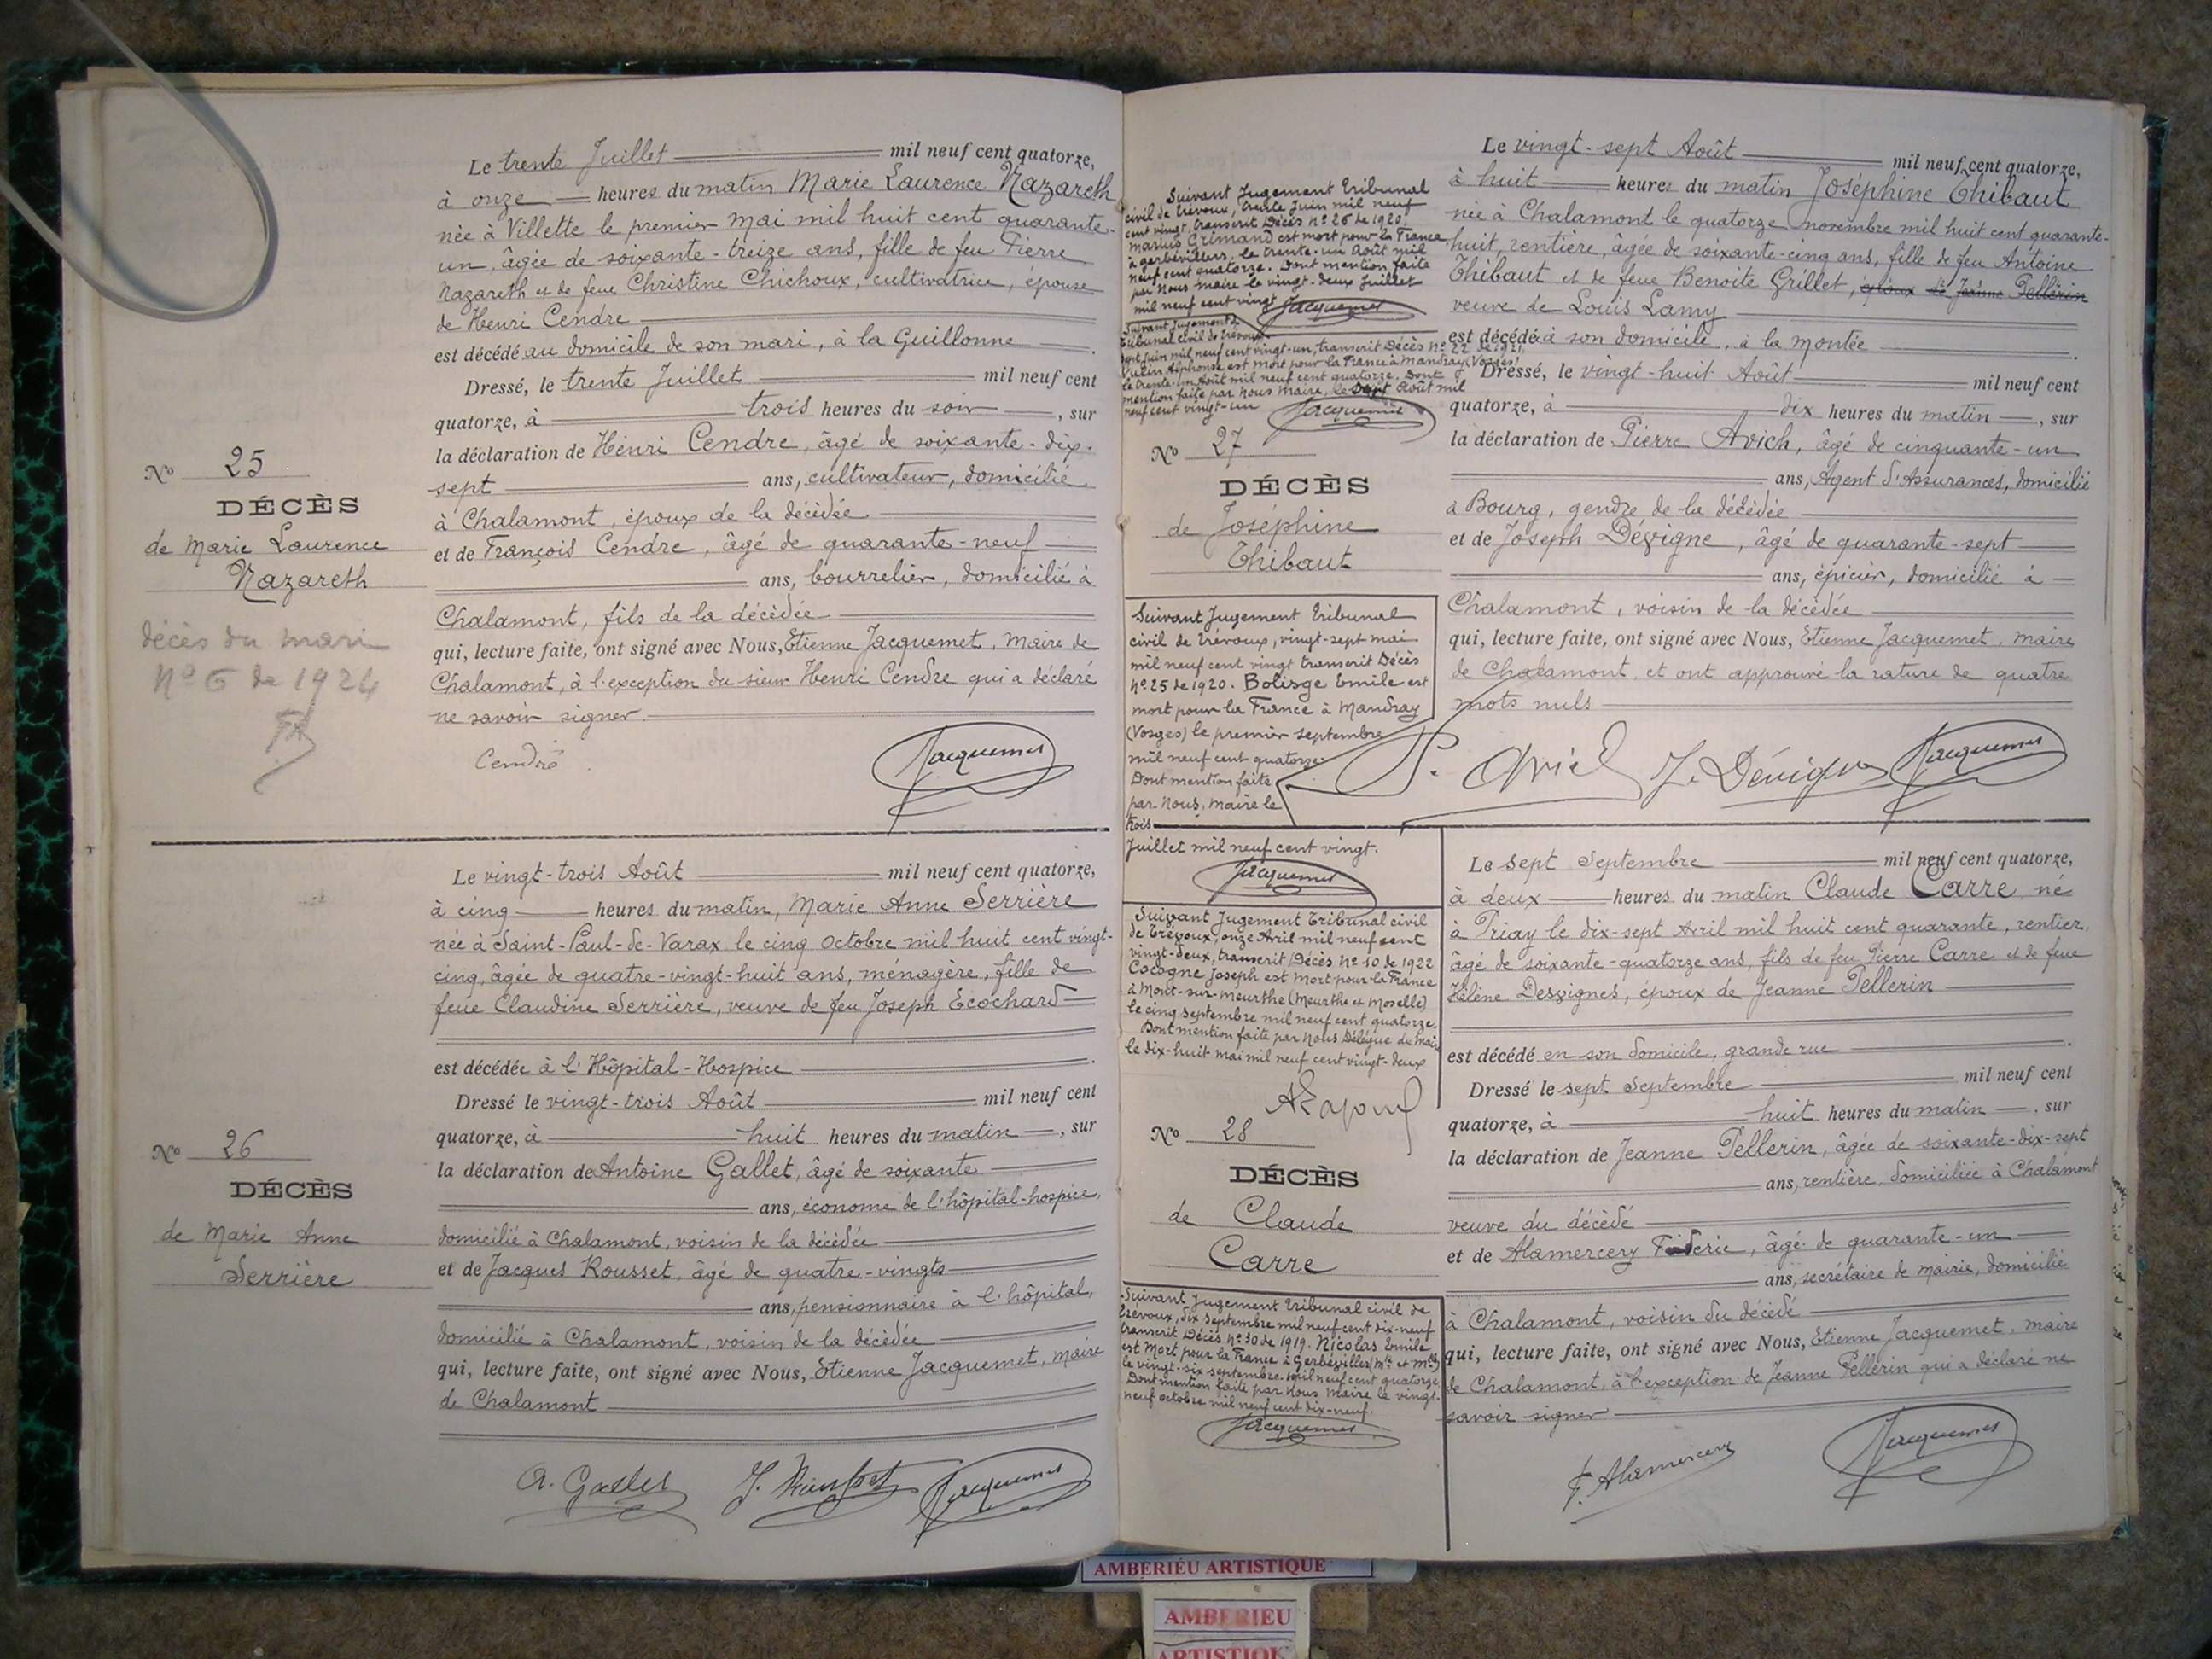 Le trente Juillet mil neuf cent quatorze,
à onze heures du matin Marie Laurence Nazareth
née à Villette le premier Mai mil huit cent quarante-
un, âgée de soixante-treize ans, fille de feu Pierre
Nazareth et de feue Christine Chichoux, cultivatrice, épouse
de Henri Cendre
est décédé au domicile de son mari, à la Guillonne.
Dressé, le trente Juillet mil neuf cent
quatorze, à trois heures du soir, sur
la déclaration de Henri Cendre, âgé de soixante-dix-
sept ans, cultivateur, domicilié
à Chalamont, époux de la décédée
et de François Cendre, âgé de quarante-neuf
ans, bourrelier, domicilié à
Chalamont, fils de la décédée
qui, lecture faite, ont signé avec Nous, Etienne Jacquemet, Maire de
Chalamont, à l'exception du sieur Henri Cendre qui a déclaré
ne savoir signer
Cendre
Jacquemet
No 25
DÉCÈS
de Marie Laurence
Nazareth
décès du mari
No 6 de 1924
Le vingt-trois Août mil neuf cent quatorze,
à cinq heures du matin, Marie Anne Serrière
née à Saint-Paul-de-Varax le cinq octobre mil huit cent vingt-
cinq, âgée de quatre-vingt-huit ans, ménagère, fille de
feue Claudine Serrière, veuve de feu Joseph Ecochard
est décédée à l'Hôpital-Hospice.
Dressé le vingt-trois Août mil neuf cent
quatorze, à huit heures du matin, sur
la déclaration de Antoine Gallet, âgé de soixante
ans, économe de l'hôpital-hospice,
domicilié à Chalamont, voisin de la décédée
et de Jacques Rousset, âgé de quatre-vingts
ans, pensionnaire à l'hôpital,
domicilié à Chalamont, voisin de la décédée
qui, lecture faite, ont signé avec Nous, Etienne Jacquemet, Maire
de Chalamont
Jacquemet
No 26
DÉCÈS
de Marie Anne
Serrière
Suivant Jugement Tribunal
civil de Trévoux, trente Juin mil neuf
cent vingt, transcrit Décès No 26 de 1920.
Marius Grimand est mort pour la France
à Gerbéviller, le trente-un Août mil
neuf cent quatorze. Dont mention faite
par Nous Maire le vingt-deux Juillet
mil neuf cent vingt Jacquemet
Suivant Jugement
Tribunal civil de Trévoux
sept Juin mil neuf cent vingt-un, transcrit Décès No 22 de 1921,
Alphonse est mort pour la France à Mandray (Vosges)
le trente-un Août mil neuf cent quatorze. Dont
mention faite par Nous Maire, le sept Août mil
neuf cent vingt-un Jacquemet
No 27
DÉCÈS
de Joséphine
Thibaut
Suivant Jugement Tribunal
civil de Trévoux, vingt-sept mai
mil neuf cent vingt transcrit Décès
No 25 de 1920. Bolisge Emile est
mort pour la France à Mandray
(Vosges) le premier septembre
mil neuf cent quatorze.
Dont mention faite
par Nous, Maire le
trois
Juillet mil neuf cent vingt.
Jacquemet
Suivant Jugement Tribunal civil
de Trévoux, onze Avril mil neuf cent
vingt-deux, transcrit Décès No 10 de 1922
Cocogne Joseph est mort pour la France
à Mont-sur-Meurthe (Meurthe et Moselle)
le cinq septembre mil neuf cent quatorze.
Dont mention faite par Nous Délégué du Maire
le dix-huit Mai mil neuf cent vingt-deux
No 28
DÉCÈS
de Claude
Carre
Suivant Jugement Tribunal civil de
Trévoux, dix septembre mil neuf cent dix-neuf
transcrit Décès No 30 de 1919. Nicolas Emile
est Mort pour la France à Gerbéviller (Mthe et Mlle)
le vingt-six septembre mil neuf cent quatorze
Dont mention faite par Nous Maire le vingt-
neuf octobre mil neuf cent dix-neuf.
Jacquemet
Le vingt-sept Août mil neuf cent quatorze,
à huit heures du matin Joséphine Thibaut
née à Chalamont le quatorze novembre mil huit cent quarante-
huit, rentière, âgée de soixante-cinq ans, fille de feu Antoine
Thibaut et de feue Benoite Grillet, époux de Jeanne Pellerin
veuve de Louis Lamy
est décédée à son domicile, à la Montée.
Dressé, le vingt-huit Août mil neuf cent
quatorze, à dix heures du matin, sur
la déclaration de Pierre Avich, âgé de cinquante-un
ans, Agent d'Assurances, domicilié
à Bourg, gendre de la décédée
et de Joseph Dévigne, âgé de quarante-sept
ans, épicier, domicilié à
Chalamont, voisin de la décédée
qui, lecture faite, ont signé avec Nous, Etienne Jacquemet, Maire
de Chalamont, et ont approuvé la rature de quatre
mots nuls
J. Dévigne Jacquemet
Le sept Septembre mil neuf cent quatorze,
à deux heures du matin Claude Carre, né
à Priay le dix-sept Avril mil huit cent quarante, rentier,
âgé de soixante-quatorze ans, fils de feu Pierre Carre et de feue
Hélène Desvignes, époux de Jeanne Pellerin
est décédé en son domicile, grande rue.
Dressé le sept Septembre mil neuf cent
quatorze, à huit heures du matin, sur
la déclaration de Jeanne Pellerin, âgée de soixante-dix-sept
ans, rentière, domiciliée à Chalamont
veuve du décédé
et de Alamercery Féderic, âgé de quarante-un
ans, secrétaire de Mairie, domicilié
à Chalamont, voisin du décédé
qui, lecture faite, ont signé avec Nous, Etienne Jacquemet, Maire
de Chalamont, à l'exception de Jeanne Pellerin qui a déclaré ne
savoir signer
F. Alamercery Jacquemet
AMBERIEU ARTISTIQUE
AMBERIEU
ARTISTIQ